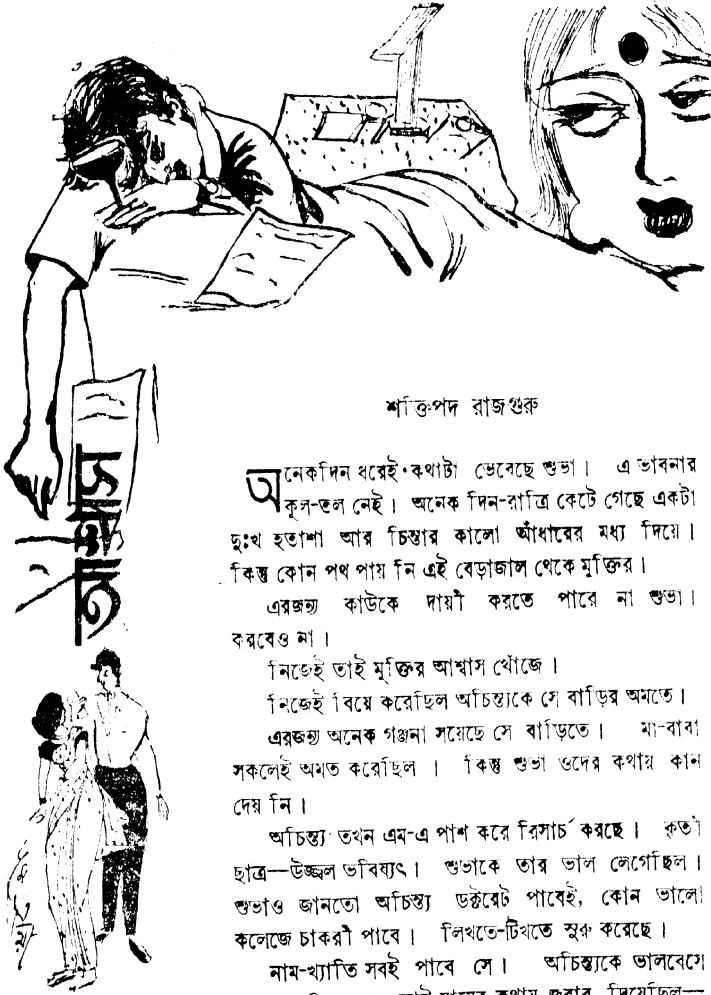 শক্তিপদ রাজগুরু
আশ্বাস
অনেকদিন ধরেই কথাটা ভেবেছে শুভা। এ ভাবনার
কূল-তল নেই। অনেক দিন-রাত্রি কেটে গেছে একটা
দুঃখ হতাশা আর চিন্তার কালো আঁধারের মধ্য দিয়ে।
কিন্তু কোন পথ পায় নি এই বেড়াজাল থেকে মুক্তির।
এরজন্য কাউকে দায়ী করতে পারে না শুভা।
করবেও না।
নিজেই তাই মুক্তির আশ্বাস খোঁজে।
নিজেই বিয়ে করেছিল অচিন্ত্যকে সে বাড়ির অমতে।
এরজন্য অনেক গঞ্জনা সয়েছে সে বাড়িতে। মা-বাবা
সকলেই অমত করেছিল। কিন্তু শুভা ওদের কথায় কান
দেয় নি।
অচিন্ত্য তখন এম-এ পাশ করে রিসার্চ করছে। কৃতী
ছাত্র—উজ্জ্বল ভবিষ্যৎ। শুভাকে তার ভাল লেগেছিল।
শুভাও জানতো অচিন্ত্য ডক্টরেট পাবেই, কোন ভালো
কলেজে চাকরী পাবে। লিখতে-টিখতে সুরু করেছে।
নাম-খ্যাতি সবই পাবে সে। অচিন্ত্যকে ভালবেসে